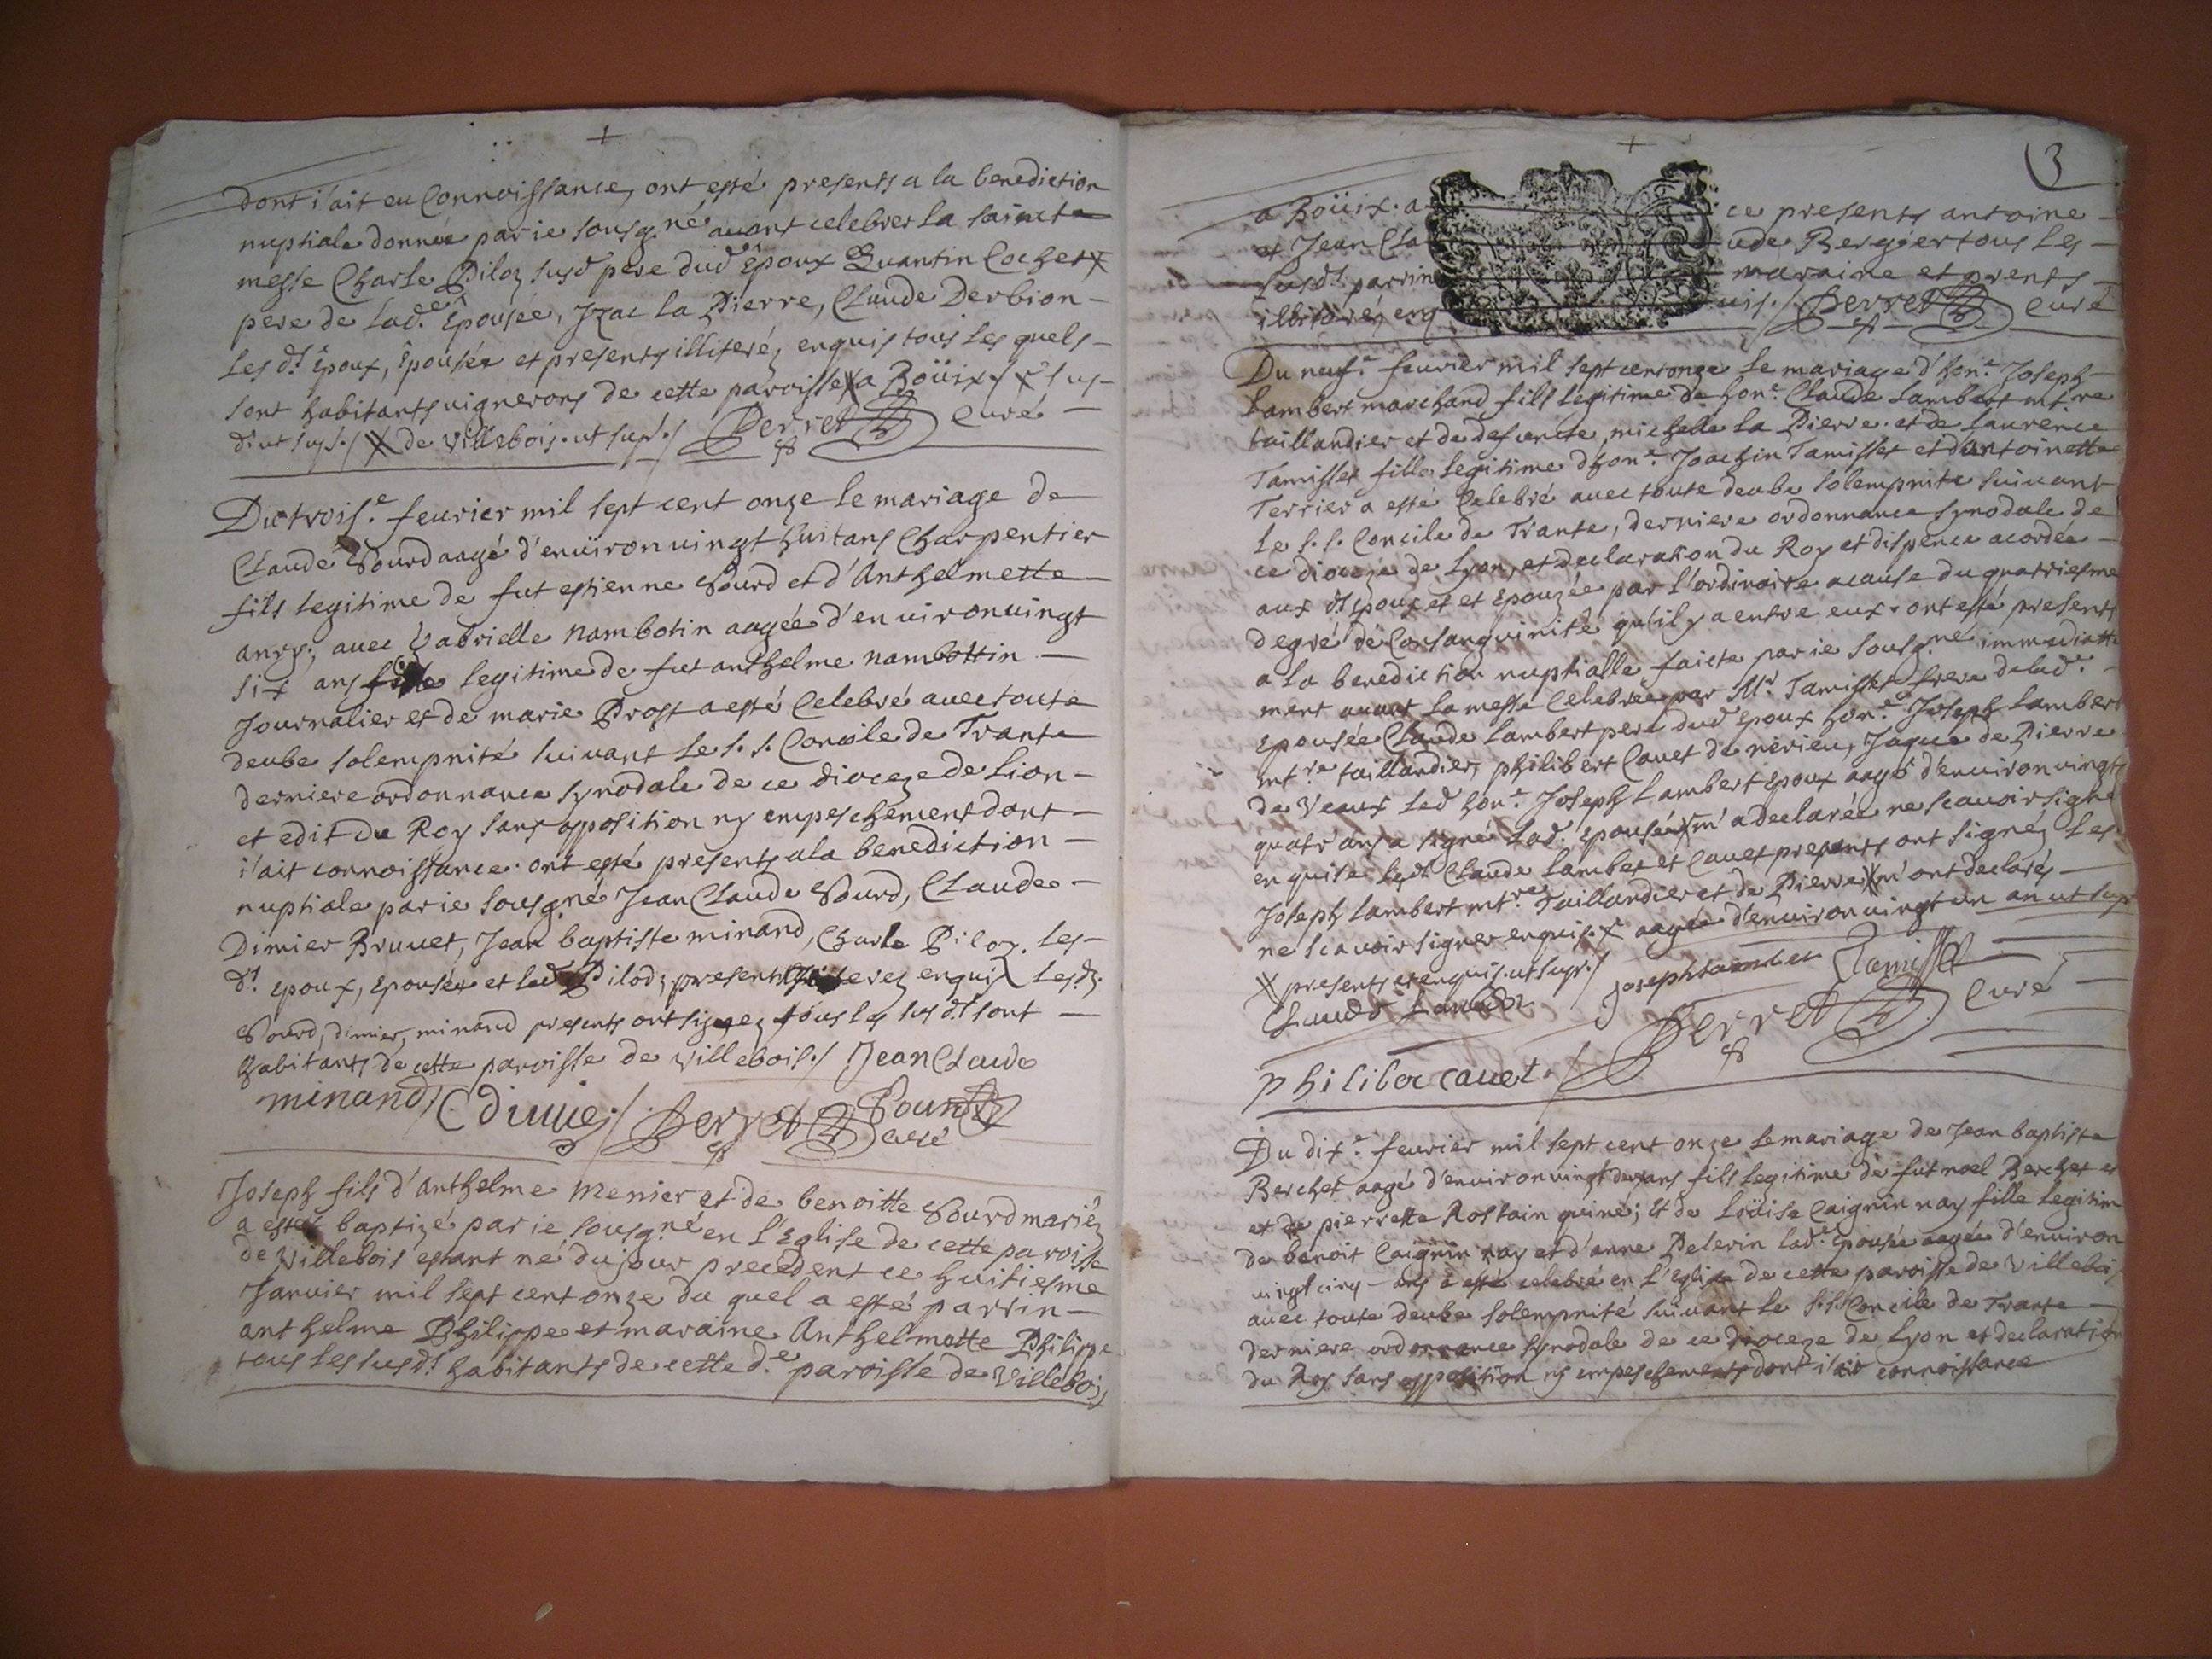 dont i'ait eu Connoissance, ont esté presents a la benediction
nuptiale donnée par ie sousg.né auant celebrer la saincte
messe Charle Piloz susd pere dud Epoux Quantin Cochet
pere de lad.e Epousée, Izac la Pierre, Claude Derbion
Les d.t Epoux, Epousée et presents illiteré, enquis tous les quels
sont habitants uignerons de cette paroisse a Boüix sus
d. ut sup./ de Villebois. ut sup./ Perret Curé
Du trois.e feurier mil sept cent onze le mariage de
Claude Sourd aagé d'enuiron uingt huit ans Charpentier
fils legitime de fut estienne Sourd et d'Anthelmette
anry, auec Gabrielle nambotin aagée d'enuiron uingt
six ans fille legitime de fut anthelme nambottin
Journalier et de marie Prost a esté Celebré auec toute
deube solempnité suiuant le s. s. Concile de Trante
derniere ordonnance synodale de ce dioceze de Lion
et edit du Roy sans opposition ny empeschement dont
i'ait connoissance. ont esté presents a la benediction
nuptiale par ie sousg.né Jean Claude Sourd, Claude
Dimier Bruuet, Jean baptiste minand, Charle Piloz. Les
d.t epoux, epousée et led Pilod, presents illiterez enquis Les d.
Sourd, dimier, minand presents ont signez tous les susd.t sont
habitants de cette paroisse de Villebois./ Jean Claude
minand C dimie./ Perret Sourd
Curé
Joseph fils d'Anthelme menier et de benoitte Sourd mariéz
a esté baptizé par ie sousg.né en l'Eglise de cette paroisse
de Villebois estant né du jour precedent ce huitiesme
Januier mil sept cent onze du quel a esté parrin
anthelme Philippe et maraine Anthelmette Philippe
tous les susd.t habitants de cette d.e paroisse de Villebois
3
a Boüix. a ce presents antoine
et Jean Cla ude Bergier tous les
susd.t parrin maraine et prents
illiteréz enq uis./ Perret Curé
Du neuf.e feurier mil sept cent onze le mariage d'hon.e Joseph
Lambert marchand fils legitime de hon.e Claude Lambert mt.re
taillandier et de defuncte michelle la Pierre. et de Laurence
Tamisset fille legitime d'hon.e Joachin Tamisset et d'antoinette
Terrier a esté Celebré auec toute deube solempnite suiuant
Le s. s. Concile de Trante, derniere ordonnance synodale de
ce dioceze de Lyon, et declaration du Roy et dispence acordée
aux d.t epoux et et epouzée par l'ordinaire acause du quatriesme
degré de Consanguinité qu'il y a entre eux. ont esté presents
a la benediction nuptialle faicte par ie sousg.né immediatte
ment auant la messe Celebrée par M.r Tamisset frere de lad.e
epousée Claude Lambert pere dud epoux hon.e Joseph Lambert
mt.re taillandier, philibert Cauet de nérieu, Jaque de Pierre
de Veaux led hon.e Joseph Lambert epoux aagé d'enuiron uingt
quatr'ans a signé lad.e epousée m'a declarée ne scauoir signé
enquise les d.t Claude Lambet et Cauet presents ont signéz Les
Joseph Lambert mt.re Taillandier et de Pierre m'ont declarés
ne scauoir signer enquis. aagée d'enuiron uingt un an ut sup
presents et enquis. ut sup./ Joseph lamber Tamisset
Claude Lamber Perret Curé
philiber cauet./
Du dix.e feurier mil sept cent onze le mariage de Jean baptiste
Berchet aagé d'enuiron uingt deux ans fils legitime de fut noel Berchet et
et de pierrette Rostain guiné; Et de Loüise Caignin nay fille legitim
de benoit Caignin nay et d'anne Pelerin lad.e epousée aagée d'enuiron
uingt cinq ans a esté celebré en l'Eglise de cette paroisse de Villebois
auec toute deube solempnité suiuant le s. s. Concile de Trante
derniere ordonnance synodale de ce dioceze de Lyon et declaration
du Roy sans opposition ny empeschements dont i'ait connoissance